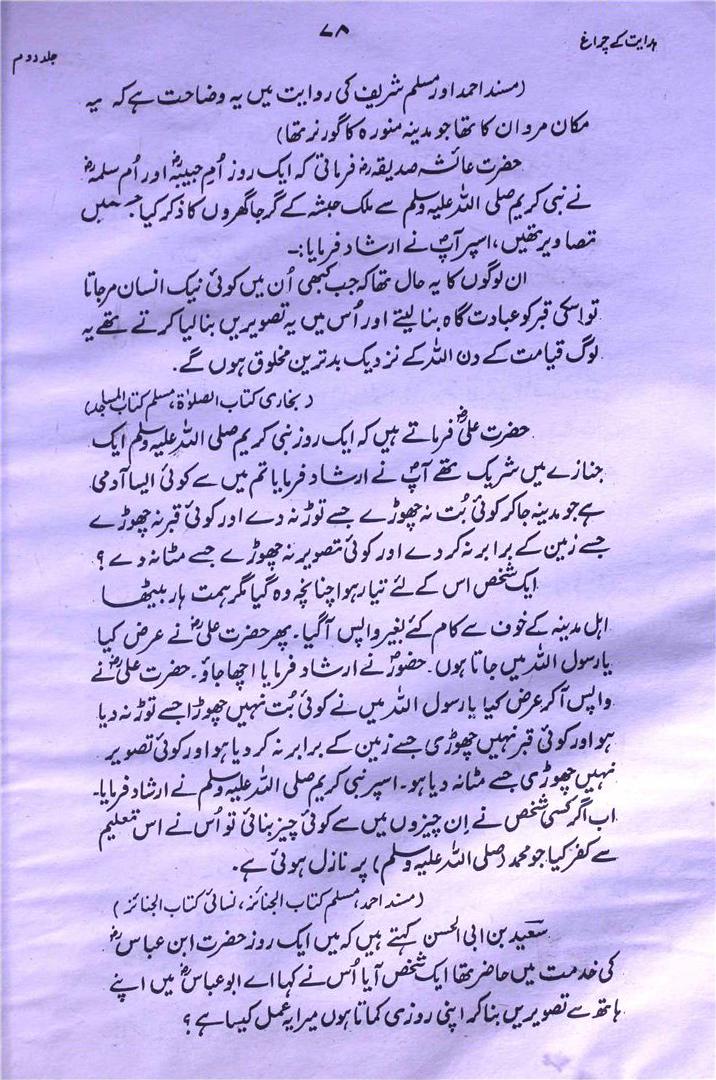 ہدایت کے چراغ
۷۸
جلد دوم
(مسند احمد اور مسلم شریف کی روایت میں یہ وضاحت ہے کہ یہ
مکان مروان کا تھا جو مدینہ منورہ کا گورنر تھا)
حضرت عائشہ صدیقہؓ فرماتی کہ ایک روز اُم حبیبہؓ اور اُم سلمہؓ
نے نبی کریم صلی اللہ علیہ وسلم سے ملک حبشہ کے گرجا گھروں کا ذکر کیا جس میں
تصاویر تھیں، اسپر آپؐ نے ارشاد فرمایا:۔
ان لوگوں کا یہ حال تھا کہ جب کبھی اُن میں کوئی نیک انسان مر جاتا
تو اسکی قبر کو عبادت گاہ بنا لیتے اور اُس میں یہ تصویریں بنا لیا کرتے تھے یہ
لوگ قیامت کے دن اللہ کے نزدیک بدترین مخلوق ہوں گے.
(بخاری کتاب الصلوٰۃ، مسلم کتاب المساجد)
حضرت علیؓ فرماتے ہیں کہ ایک روز نبی کریم صلی اللہ علیہ وسلم ایک
جنازے میں شریک تھے آپؐ نے ارشاد فرمایا تم میں سے کوئی ایسا آدمی
ہے جو مدینہ جا کر کوئی بُت نہ چھوڑے جسے توڑ نہ دے اور کوئی قبر نہ چھوڑے
جسے زمین کے برابر نہ کر دے اور کوئی تصویر نہ چھوڑے جسے مٹا نہ دے؟
ایک شخص اس کے لئے تیار ہوا چنانچہ وہ گیا مگر ہمت ہار بیٹھا
اہل مدینہ کے خوف سے کام کئے بغیر واپس آگیا۔ پھر حضرت علیؓ نے عرض کیا
یا رسول اللہ میں جاتا ہوں. حضورؐ نے ارشاد فرمایا اچھا جاؤ۔ حضرت علیؓ نے
واپس آکر عرض کیا یا رسول اللہ میں نے کوئی بُت نہیں چھوڑا جسے توڑ نہ دیا
ہو اور کوئی قبر نہیں چھوڑی جسے زمین کے برابر نہ کر دیا ہو اور کوئی تصویر
نہیں چھوڑی جسے مٹا نہ دیا ہو۔ اسپر نبی کریم صلی اللہ علیہ وسلم نے ارشاد فرمایا۔
اب اگر کسی شخص نے اِن چیزوں میں سے کوئی چیز بنائی تو اُس نے اس تعلیم
سے کفر کیا جو محمد (صلی اللہ علیہ وسلم) پر نازل ہوئی ہے.
(مسند احمد، مسلم کتاب الجنائز، نسائی کتاب الجنائز)
سعید بن ابی الحسن کہتے ہیں کہ میں ایک روز حضرت ابن عباسؓ
کی خدمت میں حاضر تھا ایک شخص آیا اُس نے کہا اے ابو عباسؓ میں اپنے
ہاتھ سے تصویریں بنا کر اپنی روزی کماتا ہوں میرا یہ عمل کیسا ہے؟